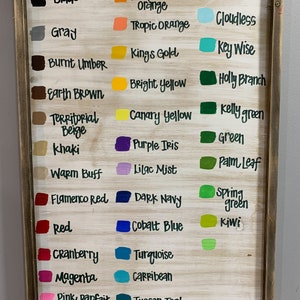 Orange
Gray
Tropic Orange
Cloudless
Burnt Umber
Kings Gold
Key Wise
Earth Brown
Bright Yellow
Holly Branch
Territorial
Beige
Canary Yellow
Kelly
green
Khaki
Purple Iris
Green
Warm Buff
Lilac Mist
Palm Leaf
Flamenco Red
Dark Navy
Spring
green
Red
Cobalt Blue
Kiwi
Cranberry
Turquoise
Magenta
Carribean